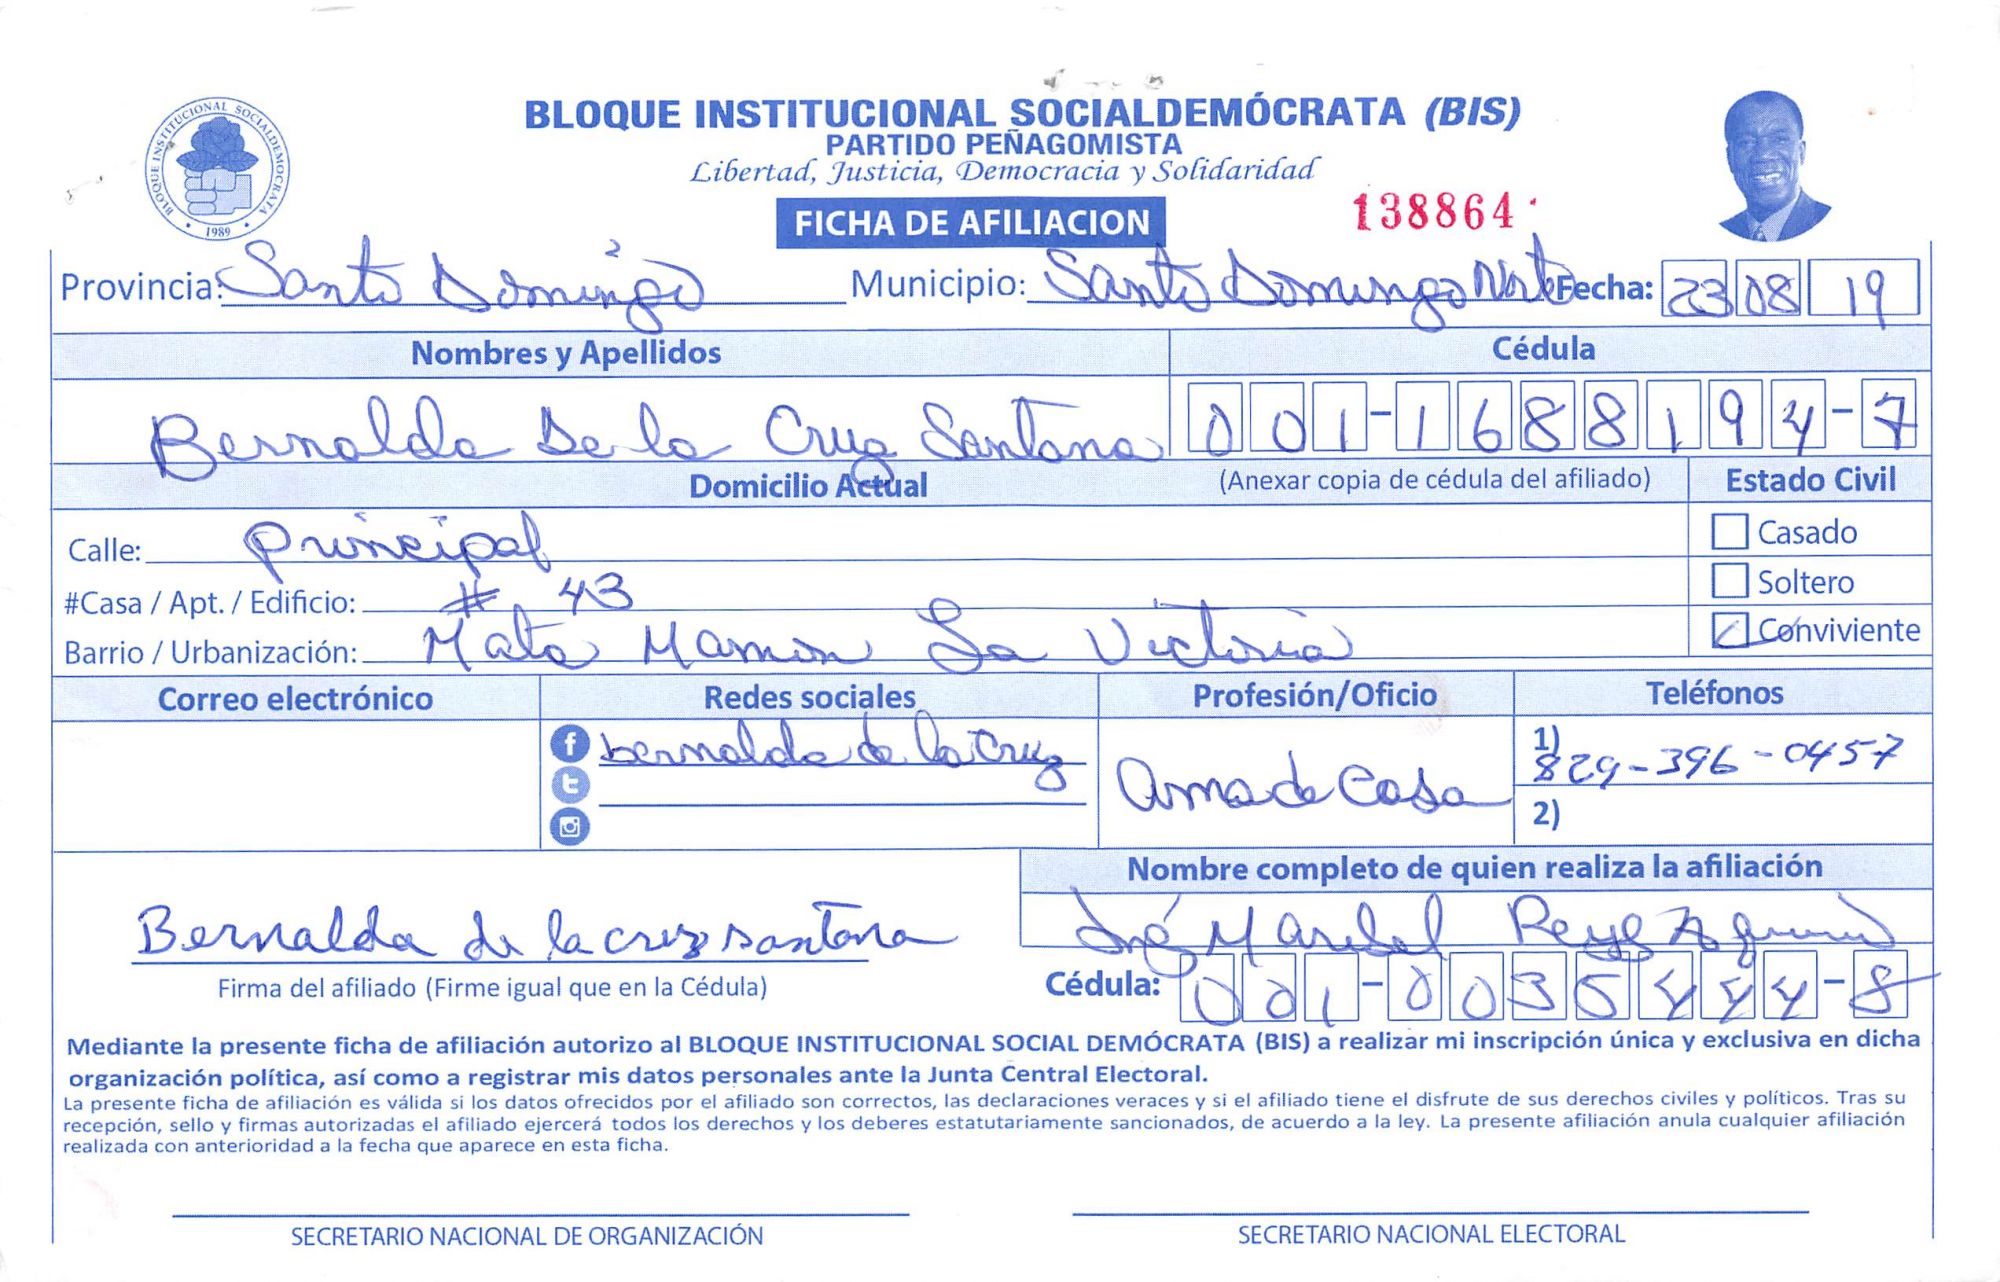 BLOQUE INSTITUCIONAL SOCIALDEMOCRATA
1989
BLOQUE INSTITUCIONAL SOCIALDEMÓCRATA (BIS)
PARTIDO PEÑAGOMISTA
Libertad, Justicia, Democracia y Solidaridad
FICHA DE AFILIACION
138864
Provincia: Santo Domingo Municipio: Santo Domingo Norte Fecha: 23 08 19
Nombres y Apellidos Cédula
Bernalda De la Cruz Santana 001-1688194-7
Domicilio Actual (Anexar copia de cédula del afiliado) Estado Civil
Calle: Principal
Casado
#Casa / Apt. / Edificio: # 43
Soltero
Barrio / Urbanización: Mata Mamon La Victoria
Conviviente
Correo electrónico Redes sociales Profesión/Oficio Teléfonos
bernalda de la Cruz
Ama de Casa
1) 829-396-0457
2)
Nombre completo de quien realiza la afiliación
Bernalda de la cruz santana
Firma del afiliado (Firme igual que en la Cédula)
Reyes
Cédula: 001-0035444-8
Mediante la presente ficha de afiliación autorizo al BLOQUE INSTITUCIONAL SOCIAL DEMÓCRATA (BIS) a realizar mi inscripción única y exclusiva en dicha
organización política, así como a registrar mis datos personales ante la Junta Central Electoral.
La presente ficha de afiliación es válida si los datos ofrecidos por el afiliado son correctos, las declaraciones veraces y si el afiliado tiene el disfrute de sus derechos civiles y políticos. Tras su
recepción, sello y firmas autorizadas el afiliado ejercerá todos los derechos y los deberes estatutariamente sancionados, de acuerdo a la ley. La presente afiliación anula cualquier afiliación
realizada con anterioridad a la fecha que aparece en esta ficha.
SECRETARIO NACIONAL DE ORGANIZACIÓN SECRETARIO NACIONAL ELECTORAL